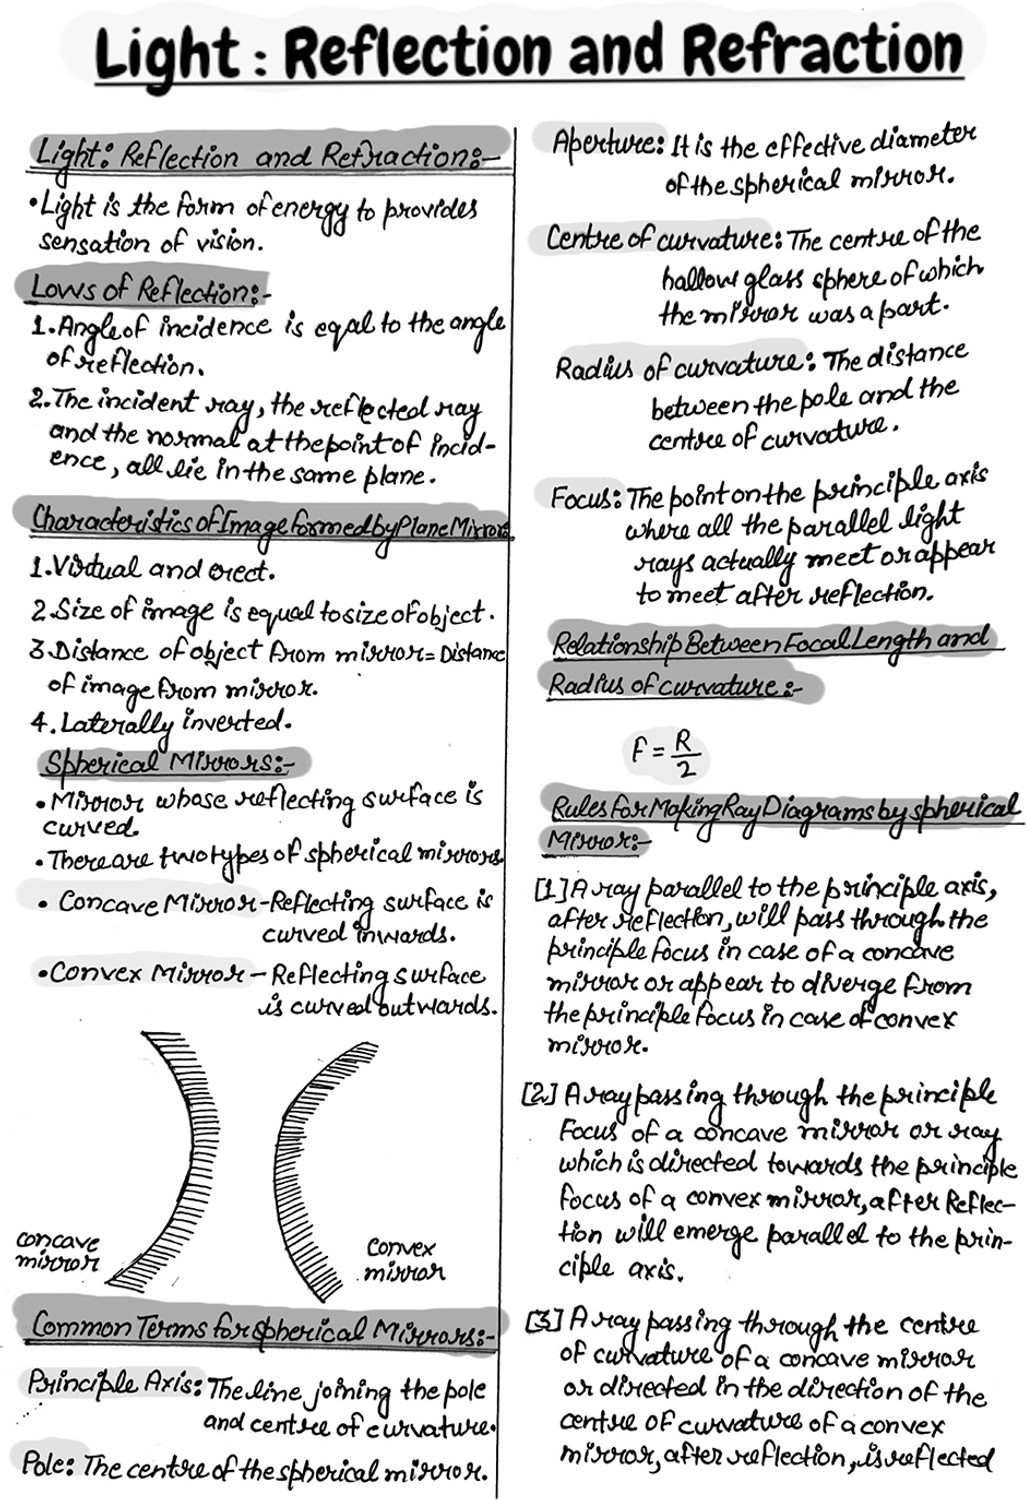 Light : Reflection and Refraction
Light: Reflection and Refraction:-
•Light is the form of energy to provides
sensation of vision.
Lows of Reflection:-
1.Angle of incidence is equal to the angle
of reflection.
2.The incident ray, the reflected ray
and the normal at the point of incid-
ence, all lie in the same plane.
Characteristics of Image formed by Plane Mirror:
1.Virtual and erect.
2.Size of image is equal to size of object.
3.Distance of object from mirror = Distance
of image from mirror.
4.Laterally inverted.
Spherical Mirrors:-
•Mirror whose reflecting surface is
curved.
•There are two types of spherical mirrors.
• Concave Mirror-Reflecting surface is
curved inwards.
•Convex Mirror-Reflecting surface
is curved outwards.
concave
mirror
convex
mirror
Common Terms for spherical Mirrors:-
Principle Axis: The line joining the pole
and centre of curvature.
Pole: The centre of the spherical mirror.
Aperture: It is the effective diameter
of the spherical mirror.
Centre of curvature: The centre of the
hallow glass sphere of which
the mirror was a part.
Radius of curvature: The distance
between the pole and the
centre of curvature.
Focus: The point on the principle axis
where all the parallel light
rays actually meet or appear
to meet after reflection.
Relationship Between Focal Length and
Radius of curvature:-
F = R/2
Rules for Making Ray Diagrams by spherical
Mirror:-
[1] A ray parallel to the principle axis,
after reflection, will pass through the
principle focus in case of a concave
mirror or appear to diverge from
the principle focus in case of convex
mirror.
[2] A ray passing through the principle
Focus of a concave mirror or ray
which is directed towards the principle
focus of a convex mirror, after Reflec-
tion will emerge parallel to the prin-
ciple axis.
[3] A ray passing through the centre
of curvature of a concave mirror
or directed in the direction of the
centre of curvature of a convex
mirror, after reflection, is reflected